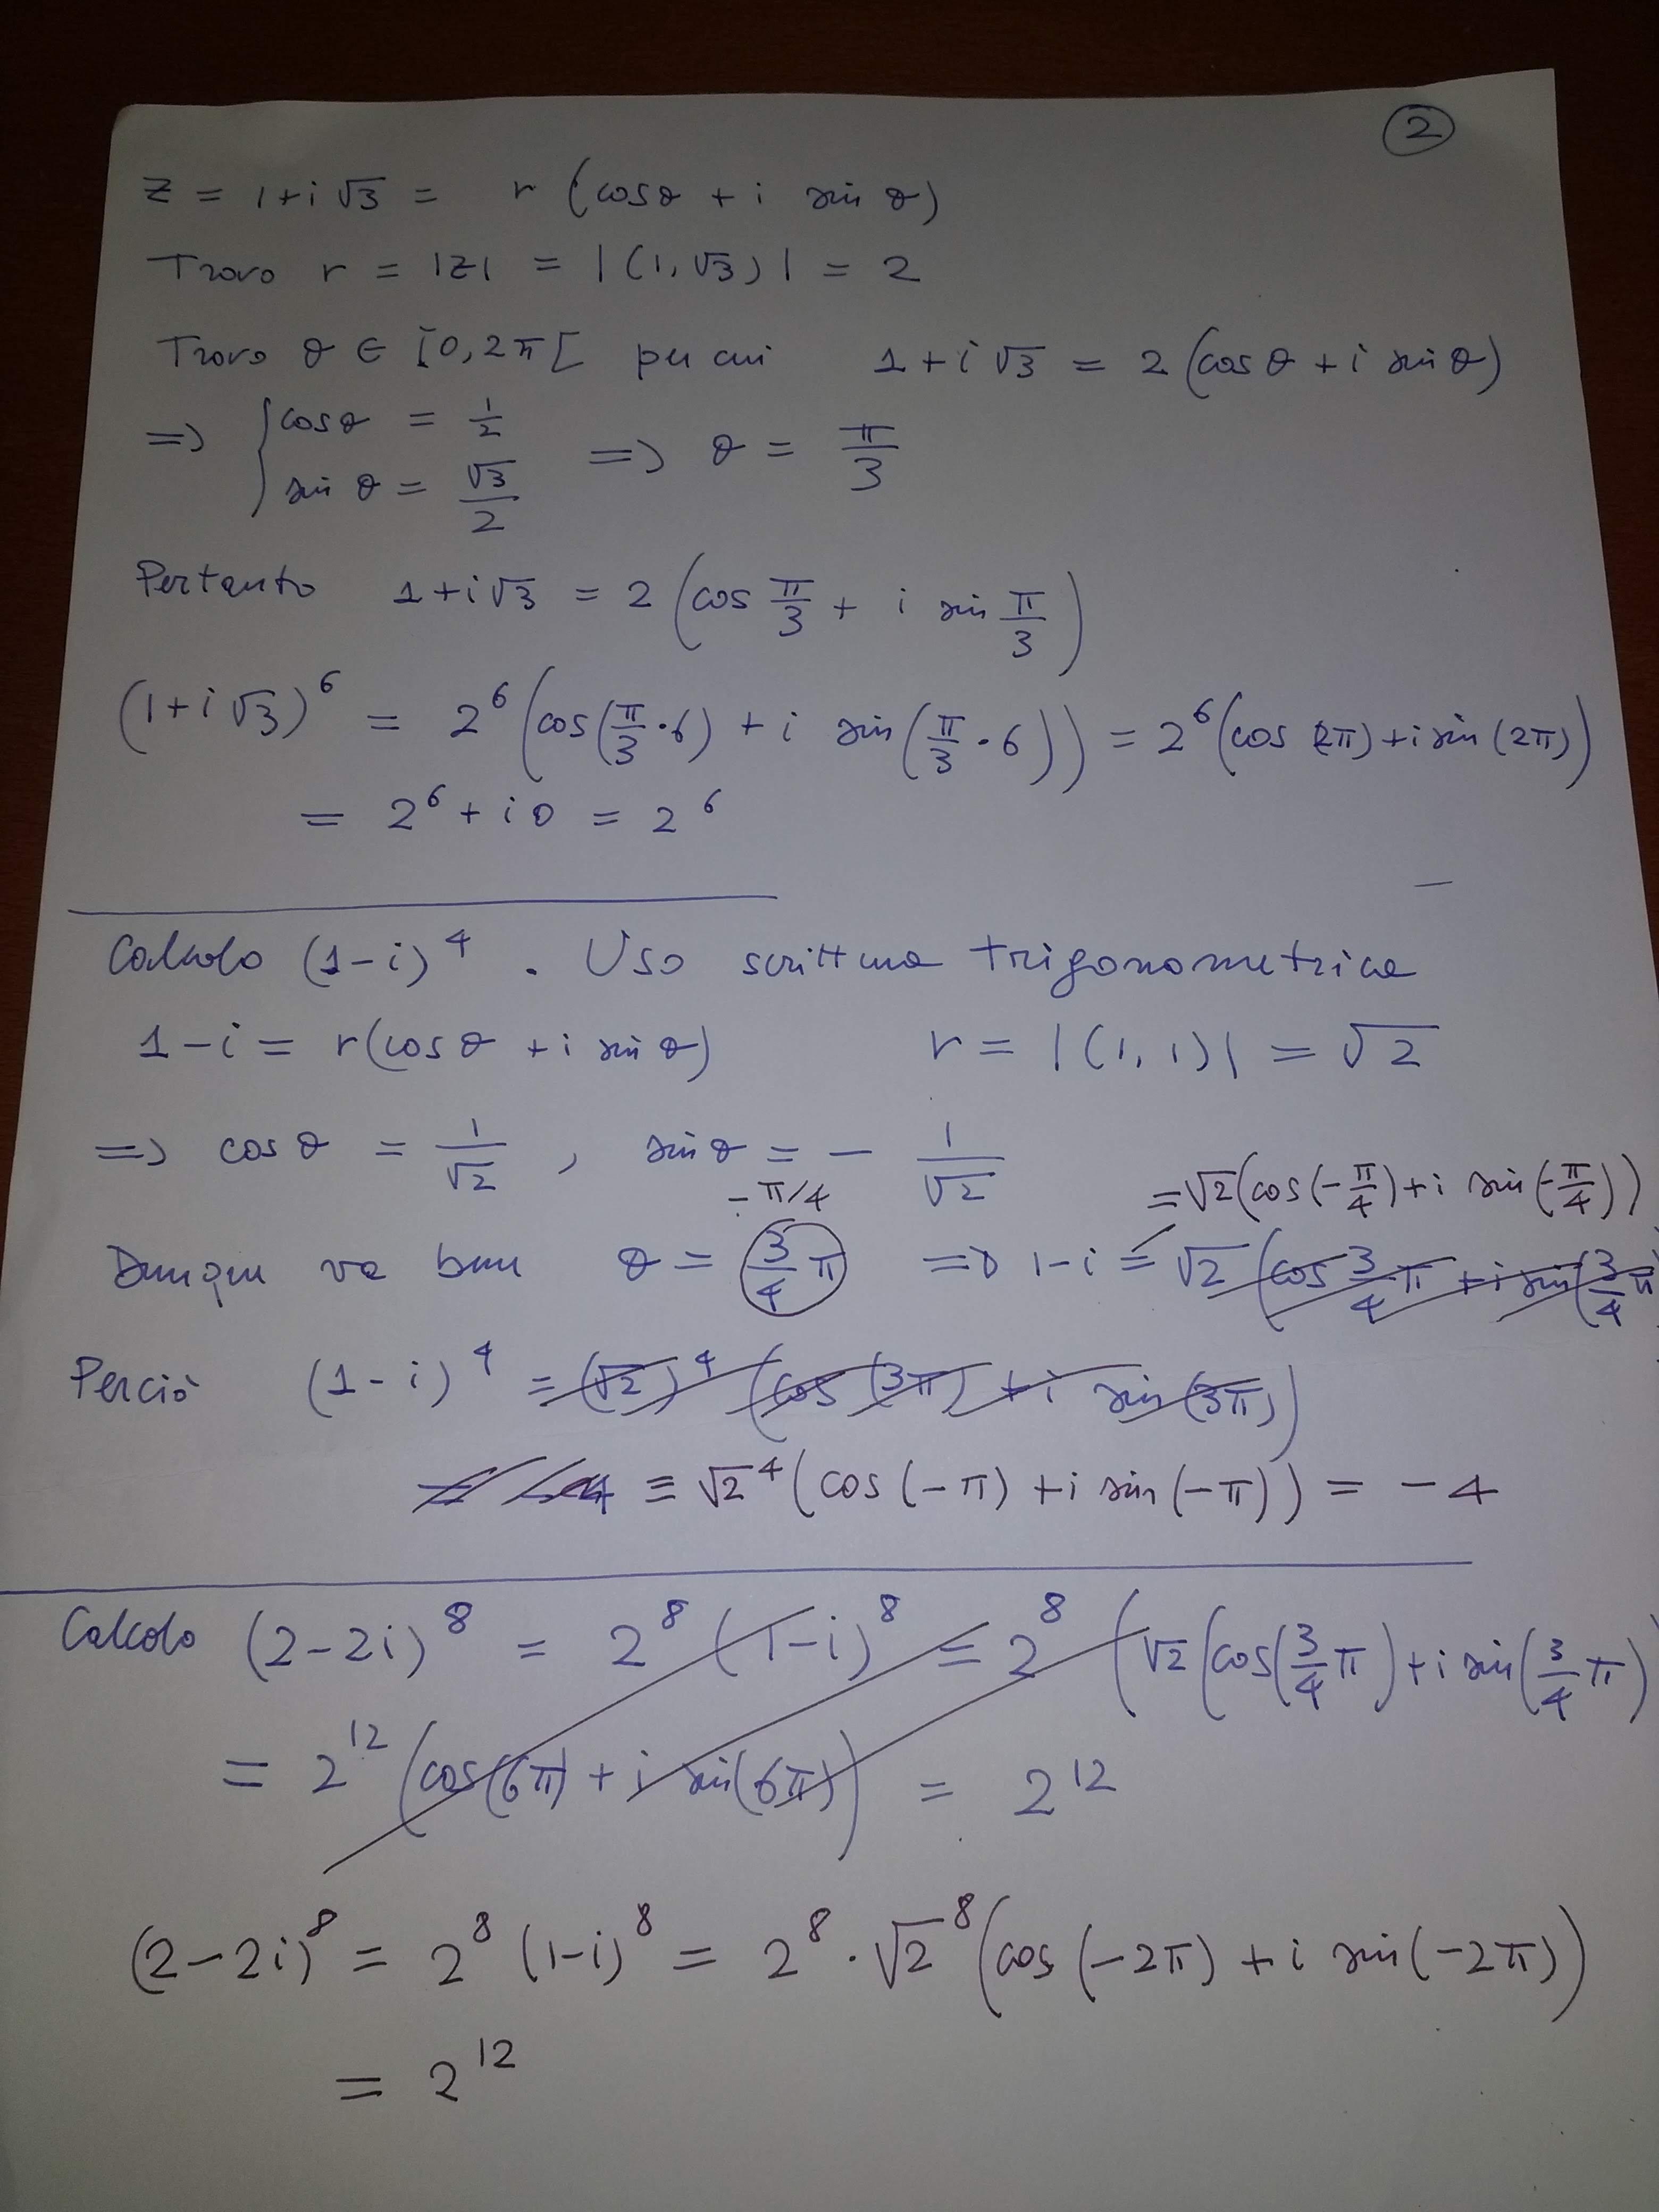 2
z = 1+i√3 = r (cosθ + i sin θ)
Trovo r = |z| = |(1,√3)| = 2
Trovo θ ∈ [0,2π[ per cui 1+i√3 = 2(cosθ + i sinθ)
=> { cosθ = 1/2
sin θ = √3/2 => θ = π/3
Pertanto 1+i√3 = 2 (cos π/3 + i sin π/3)
(1+i√3)^6 = 2^6 (cos(π/3·6) + i sin(π/3·6)) = 2^6(cos (2π)+i sin (2π))
= 2^6 + i0 = 2^6
Calcolo (1-i)^4 . Uso scrittura trigonometrica
1-i = r(cosθ + i sinθ) r = |(1,1)| = √2
=> cosθ = 1/√2 , sinθ = - 1/√2
-π/4 =√2(cos(-π/4)+i sin(-π/4))
Dunque va bene θ = 3/4 π => 1-i = √2 (cos 3/4 π + i sin(3/4 π
Perciò (1-i)^4 = (√2)^4 (cos (3π) + i sin(3π))
= -4 = √2^4 (cos(-π) + i sin(-π)) = -4
Calcolo (2-2i)^8 = 2^8 (1-i)^8 = 2^8 (√2(cos(3/4 π)+i sin(3/4 π)
= 2^12 (cos(6π) + i sin(6π)) = 2^12
(2-2i)^8 = 2^8 (1-i)^8 = 2^8 · √2^8 (cos(-2π) + i sin(-2π))
= 2^12